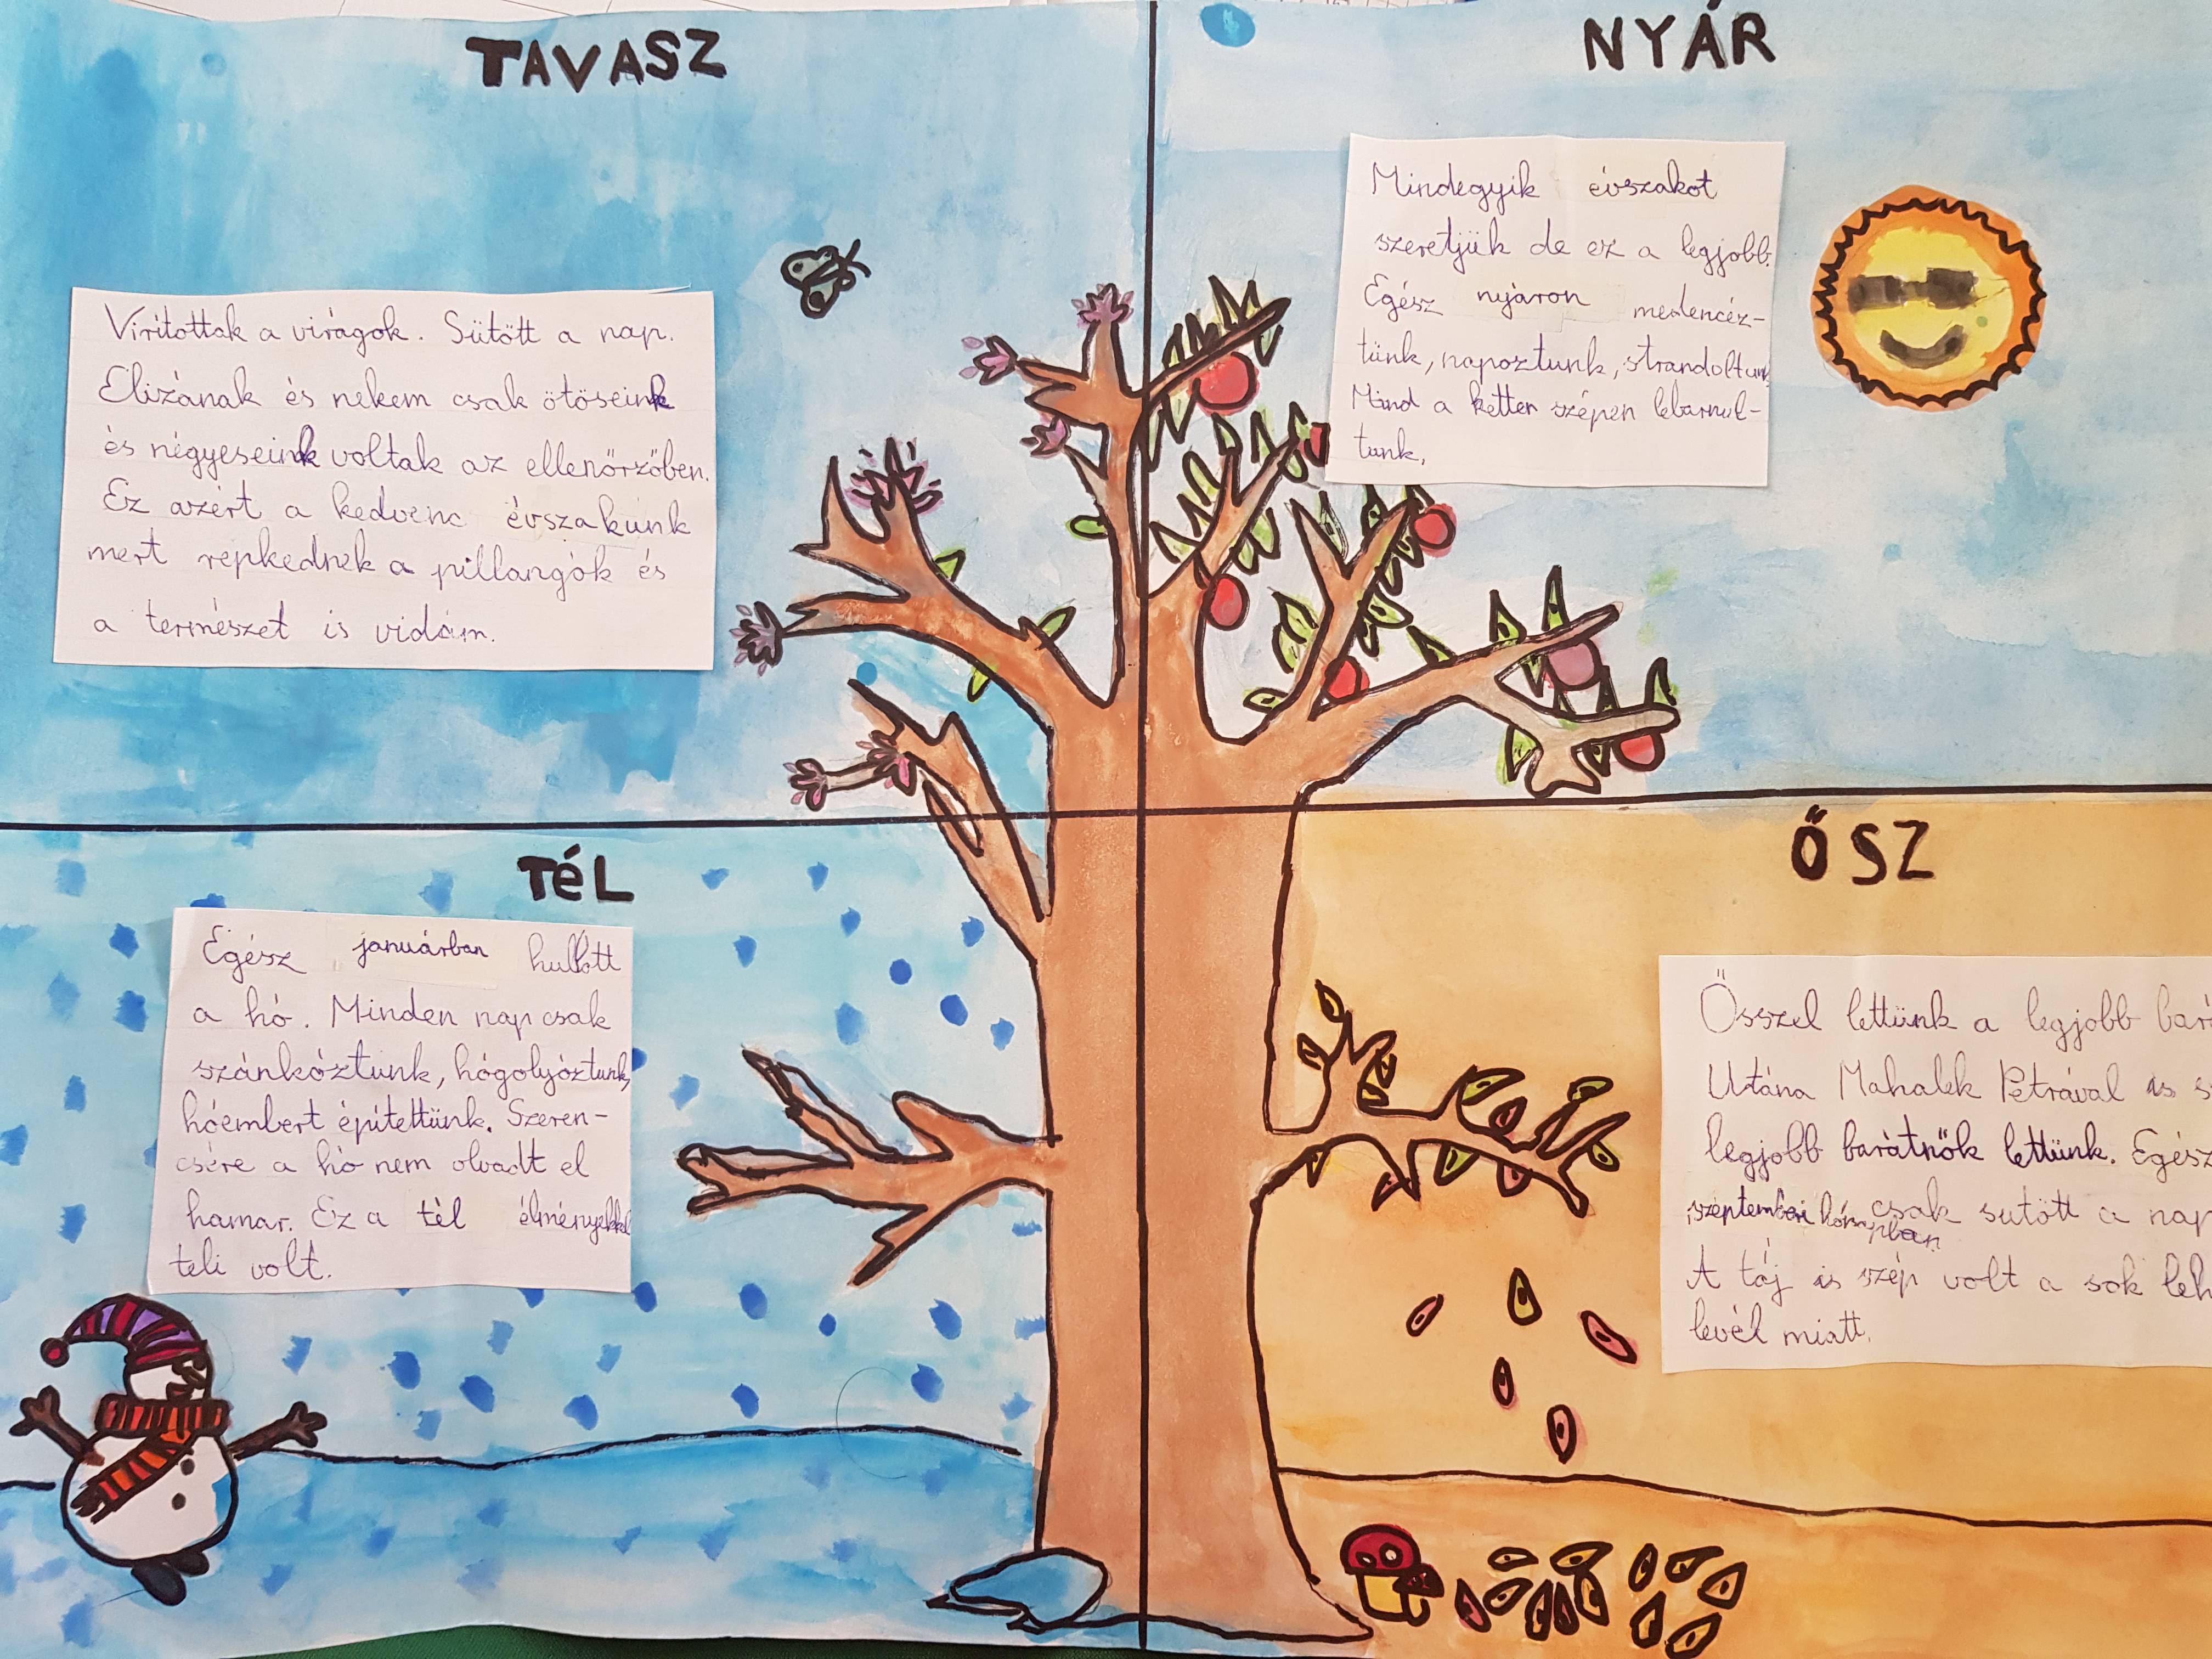 TAVASZ
Virítottak a virágok. Sütött a nap.
Elizának és nekem csak ötöseink
és négyeseink voltak az ellenőrzőben.
Ez azért a kedvenc évszakunk
mert repkednek a pillangók és
a természet is vidám.
NYÁR
Mindegyik évszakot
szeretjük de ez a legjobb.
Egész nyáron medencéz-
tünk, napoztunk, strandoltunk
Mind a ketten szépen lebarnul-
tunk.
TéL
Egész januárban hullott
a hó. Minden nap csak
szánkóztunk, hógolyóztunk,
hóembert építettünk. Szeren-
csére a hó nem olvadt el
hamar. Ez a tél élményekkel
teli volt.
ŐSZ
Ősszel lettünk a legjobb
Utána Mahalek Petrával is
legjobb barátnők lettünk. Egész
szeptemberi hónapban csak sütött a nap
A táj is szép volt a sok
levél miatt.